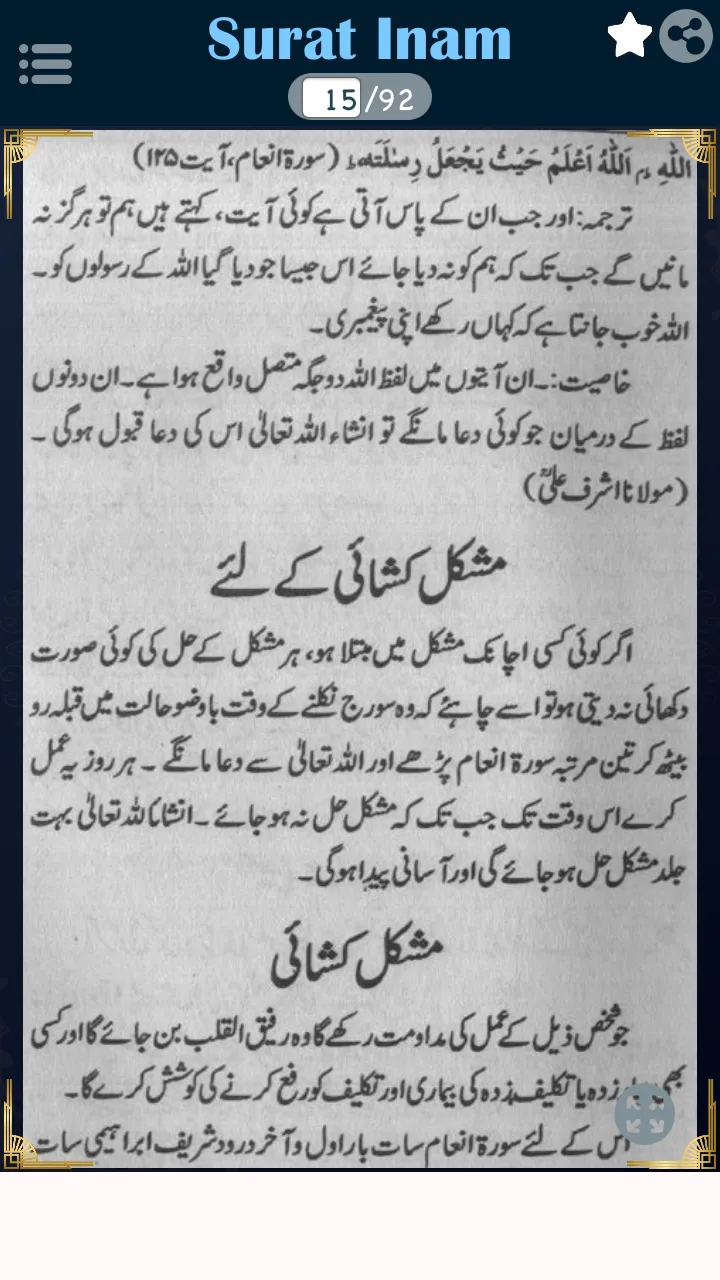 Surat Inam
15/92
اللّٰهِ ؕ اَللّٰهُ اَعْلَمُ حَيْثُ يَجْعَلُ رِسٰلَتَهٗ ؕ (سورۃ انعام، آیت ۱۲۵)
ترجمہ: اور جب ان کے پاس آتی ہے کوئی آیت، کہتے ہیں ہم تو ہرگز نہ
مانیں گے جب تک کہ ہم کو نہ دیا جائے اس جیسا جو دیا گیا اللہ کے رسولوں کو۔
اللہ خوب جانتا ہے کہ کہاں رکھے اپنی پیغمبری۔
خاصیت:۔ ان آیتوں میں لفظ اللہ دو جگہ متصل واقع ہوا ہے۔ ان دونوں
لفظ کے درمیان جو کوئی دعا مانگے تو انشاء اللہ تعالیٰ اس کی دعا قبول ہوگی ۔
(مولانا اشرف علیؒ)
مشکل کشائی کے لئے
اگر کوئی کسی اچانک مشکل میں مبتلا ہو، ہر مشکل کے حل کی کوئی صورت
دکھائی نہ دیتی ہو تو اسے چاہئے کہ وہ سورج نکلنے کے وقت باوضو حالت میں قبلہ رو
بیٹھ کر تین مرتبہ سورۃ انعام پڑھے اور اللہ تعالیٰ سے دعا مانگے ۔ ہر روز یہ عمل
کرے اس وقت تک جب تک کہ مشکل حل نہ ہو جائے ۔ انشاءاللہ تعالیٰ بہت
جلد مشکل حل ہو جائے گی اور آسانی پیدا ہوگی۔
مشکل کشائی
جو شخص ذیل کے عمل کی مداومت رکھے گا وہ رفیق القلب بن جائے گا اور کسی
بھی زدہ یا تکلیف زدہ کی بیماری اور تکلیف کو رفع کرنے کی کوشش کرے گا۔
اس کے لئے سورۃ انعام سات بار اول و آخر درود شریف ابراہیمی سات